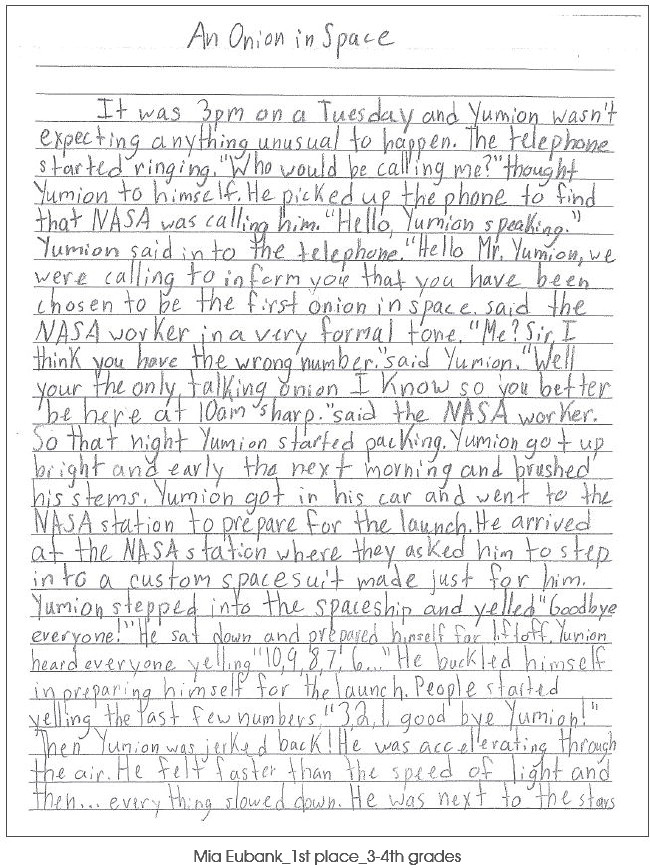 An Onion in Space
It was 3pm on a Tuesday and Yumion wasn't
expecting anything unusual to happen. The telephone
started ringing. "Who would be calling me?" thought
Yumion to himself. He picked up the phone to find
that NASA was calling him. "Hello, Yumion speaking."
Yumion said in to the telephone. "Hello Mr. Yumion, we
were calling to inform you that you have been
chosen to be the first onion in space. said the
NASA worker in a very formal tone. "Me? Sir, I
think you have the wrong number." said Yumion. "Well
your the only talking onion I know so you better
be here at 10am sharp." said the NASA worker.
So that night Yumion started packing. Yumion got up
bright and early the next morning and brushed
his stems. Yumion got in his car and went to the
NASA station to prepare for the launch. He arrived
at the NASA station where they asked him to step
in to a custom spacesuit made just for him.
Yumion stepped into the spaceship and yelled "Goodbye
everyone!" He sat down and prepared himself for liftoff. Yumion
heard everyone yelling "10, 9, 8, 7, 6..." He buckled himself
in preparing himself for the launch. People started
yelling the last few numbers, "3, 2, 1, good bye Yumion!"
Then Yumion was jerked back! He was accelerating through
the air. He felt faster than the speed of light and
then... every thing slowed down. He was next to the stars
Mia Eubank_1st place_3-4th grades